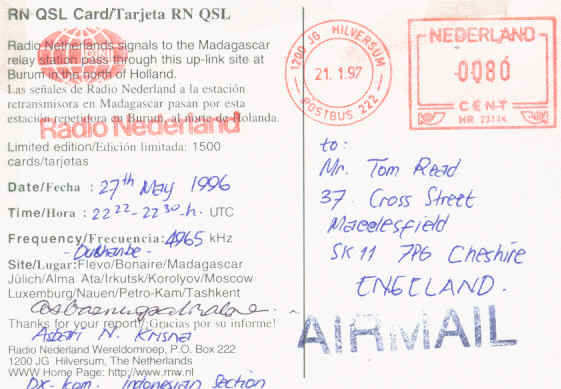 RN QSL Card/Tarjeta RN QSL
Radio Netherlands signals to the Madagascar
relay station pass through this up-link site at
Burum in the north of Holland.
Las señales de Radio Nederland a la estación
retransmisora en Madagascar pasan por esta
estación repetidora en Burum, al norte de Holanda.
Radio Nederland
Limited edition/Edición limitada: 1500
cards/tarjetas
Date/Fecha : 27th May 1996
Time/Hora : 22 22 - 22 30 -h. UTC
Frequency/Frecuencia: 4965 kHz
- Dushanbe -
Site/Lugar: Flevo/Bonaire/Madagascar
Jülich/Alma Ata/Irkutsk/Korolyov/Moscow
Luxemburg/Nauen/Petro-Kam/Tashkent
Thanks for your report/¡Gracias por su informe!
Astari N. Krisna
Radio Nederland Wereldomroep, P.O. Box 222
1200 JG Hilversum, The Netherlands
WWW Home Page: http://www.rnw.nl
Dx-kom. Indonesian Section
1200 JG HILVERSUM
21. 1.97
POSTBUS 222
NEDERLAND
0080
CENT
HR
to:
Mr. Tom Read
37 Cross Street
Macclesfield
SK11 7PG Cheshire
ENGELAND.
AIRMAIL